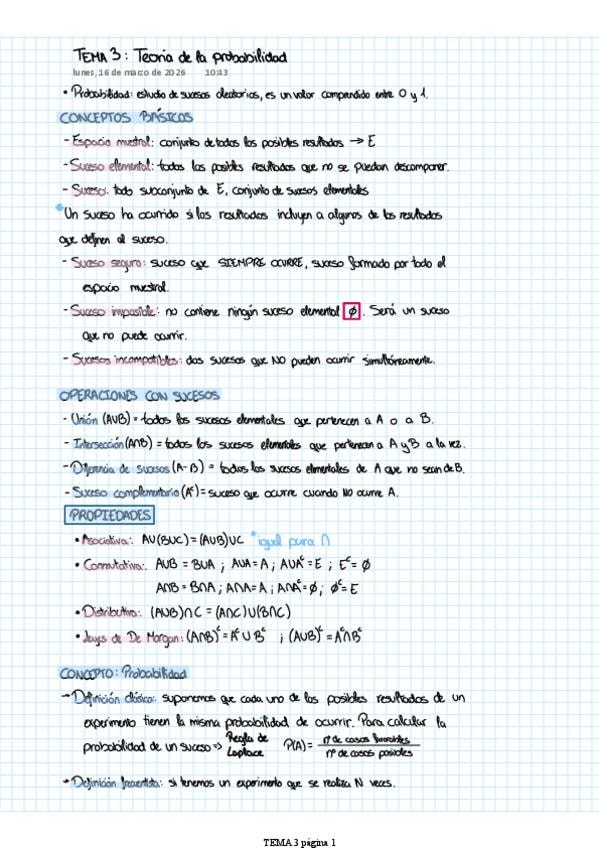 TEMA 3: Teoria de la probabilidad
lunes, 16 de marzo de 2026 10:43
• Probabilidad: estudio de sucesos aleatorios, es un valor comprendido entre 0 y 1.
CONCEPTOS BÁSICOS
- Espacio muestral: conjunto de todos los posibles resultados → E
- Suceso elemental: todos los posibles resultados que no se puedan descomponer.
- Suceso: todo subconjunto de E, conjunto de sucesos elementales
*Un suceso ha ocurrido si los resultados incluyen a algunos de los resultados
que definen al suceso.
- Suceso seguro: suceso que SIEMPRE OCURRE, suceso formado por todo el
espacio muestral.
- Suceso imposible: no contiene ningún suceso elemental ∅. Será un suceso
que no puede ocurrir.
- Sucesos incompatibles: dos sucesos que NO pueden ocurrir simultáneamente.
OPERACIONES CON SUCESOS
- Unión (A∪B) = todos los sucesos elementales que pertenecen a A o a B.
- Intersección (A∩B) = todos los sucesos elementales que pertenecen a A y B a la vez.
- Diferencia de sucesos (A-B) = todos los sucesos elementales de A que no sean de B.
- Suceso complementario (Aᶜ) = suceso que ocurre cuando NO ocurre A.
PROPIEDADES
• Asociativa: A∪(B∪C) = (A∪B)∪C *igual para ∩
• Conmutativa: A∪B = B∪A ; A∪A = A ; A∪Aᶜ = E ; Eᶜ = ∅
A∩B = B∩A ; A∩A = A ; A∩Aᶜ = ∅ ; ∅ᶜ = E
• Distributiva: (A∪B)∩C = (A∩C)∪(B∩C)
• Leyes de De Morgan: (A∩B)ᶜ = Aᶜ∪Bᶜ ; (A∪B)ᶜ = Aᶜ∩Bᶜ
CONCEPTO: Probabilidad
→ Definición clásica: suponemos que cada uno de los posibles resultados de un
experimento tienen la misma probabilidad de ocurrir. Para calcular la
probabilidad de un suceso ⇒ Regla de Laplace P(A) = nº de casos favorables / nº de casos posibles
→ Definición frecuentista: si tenemos un experimento que se realiza N veces.
TEMA 3 página 1